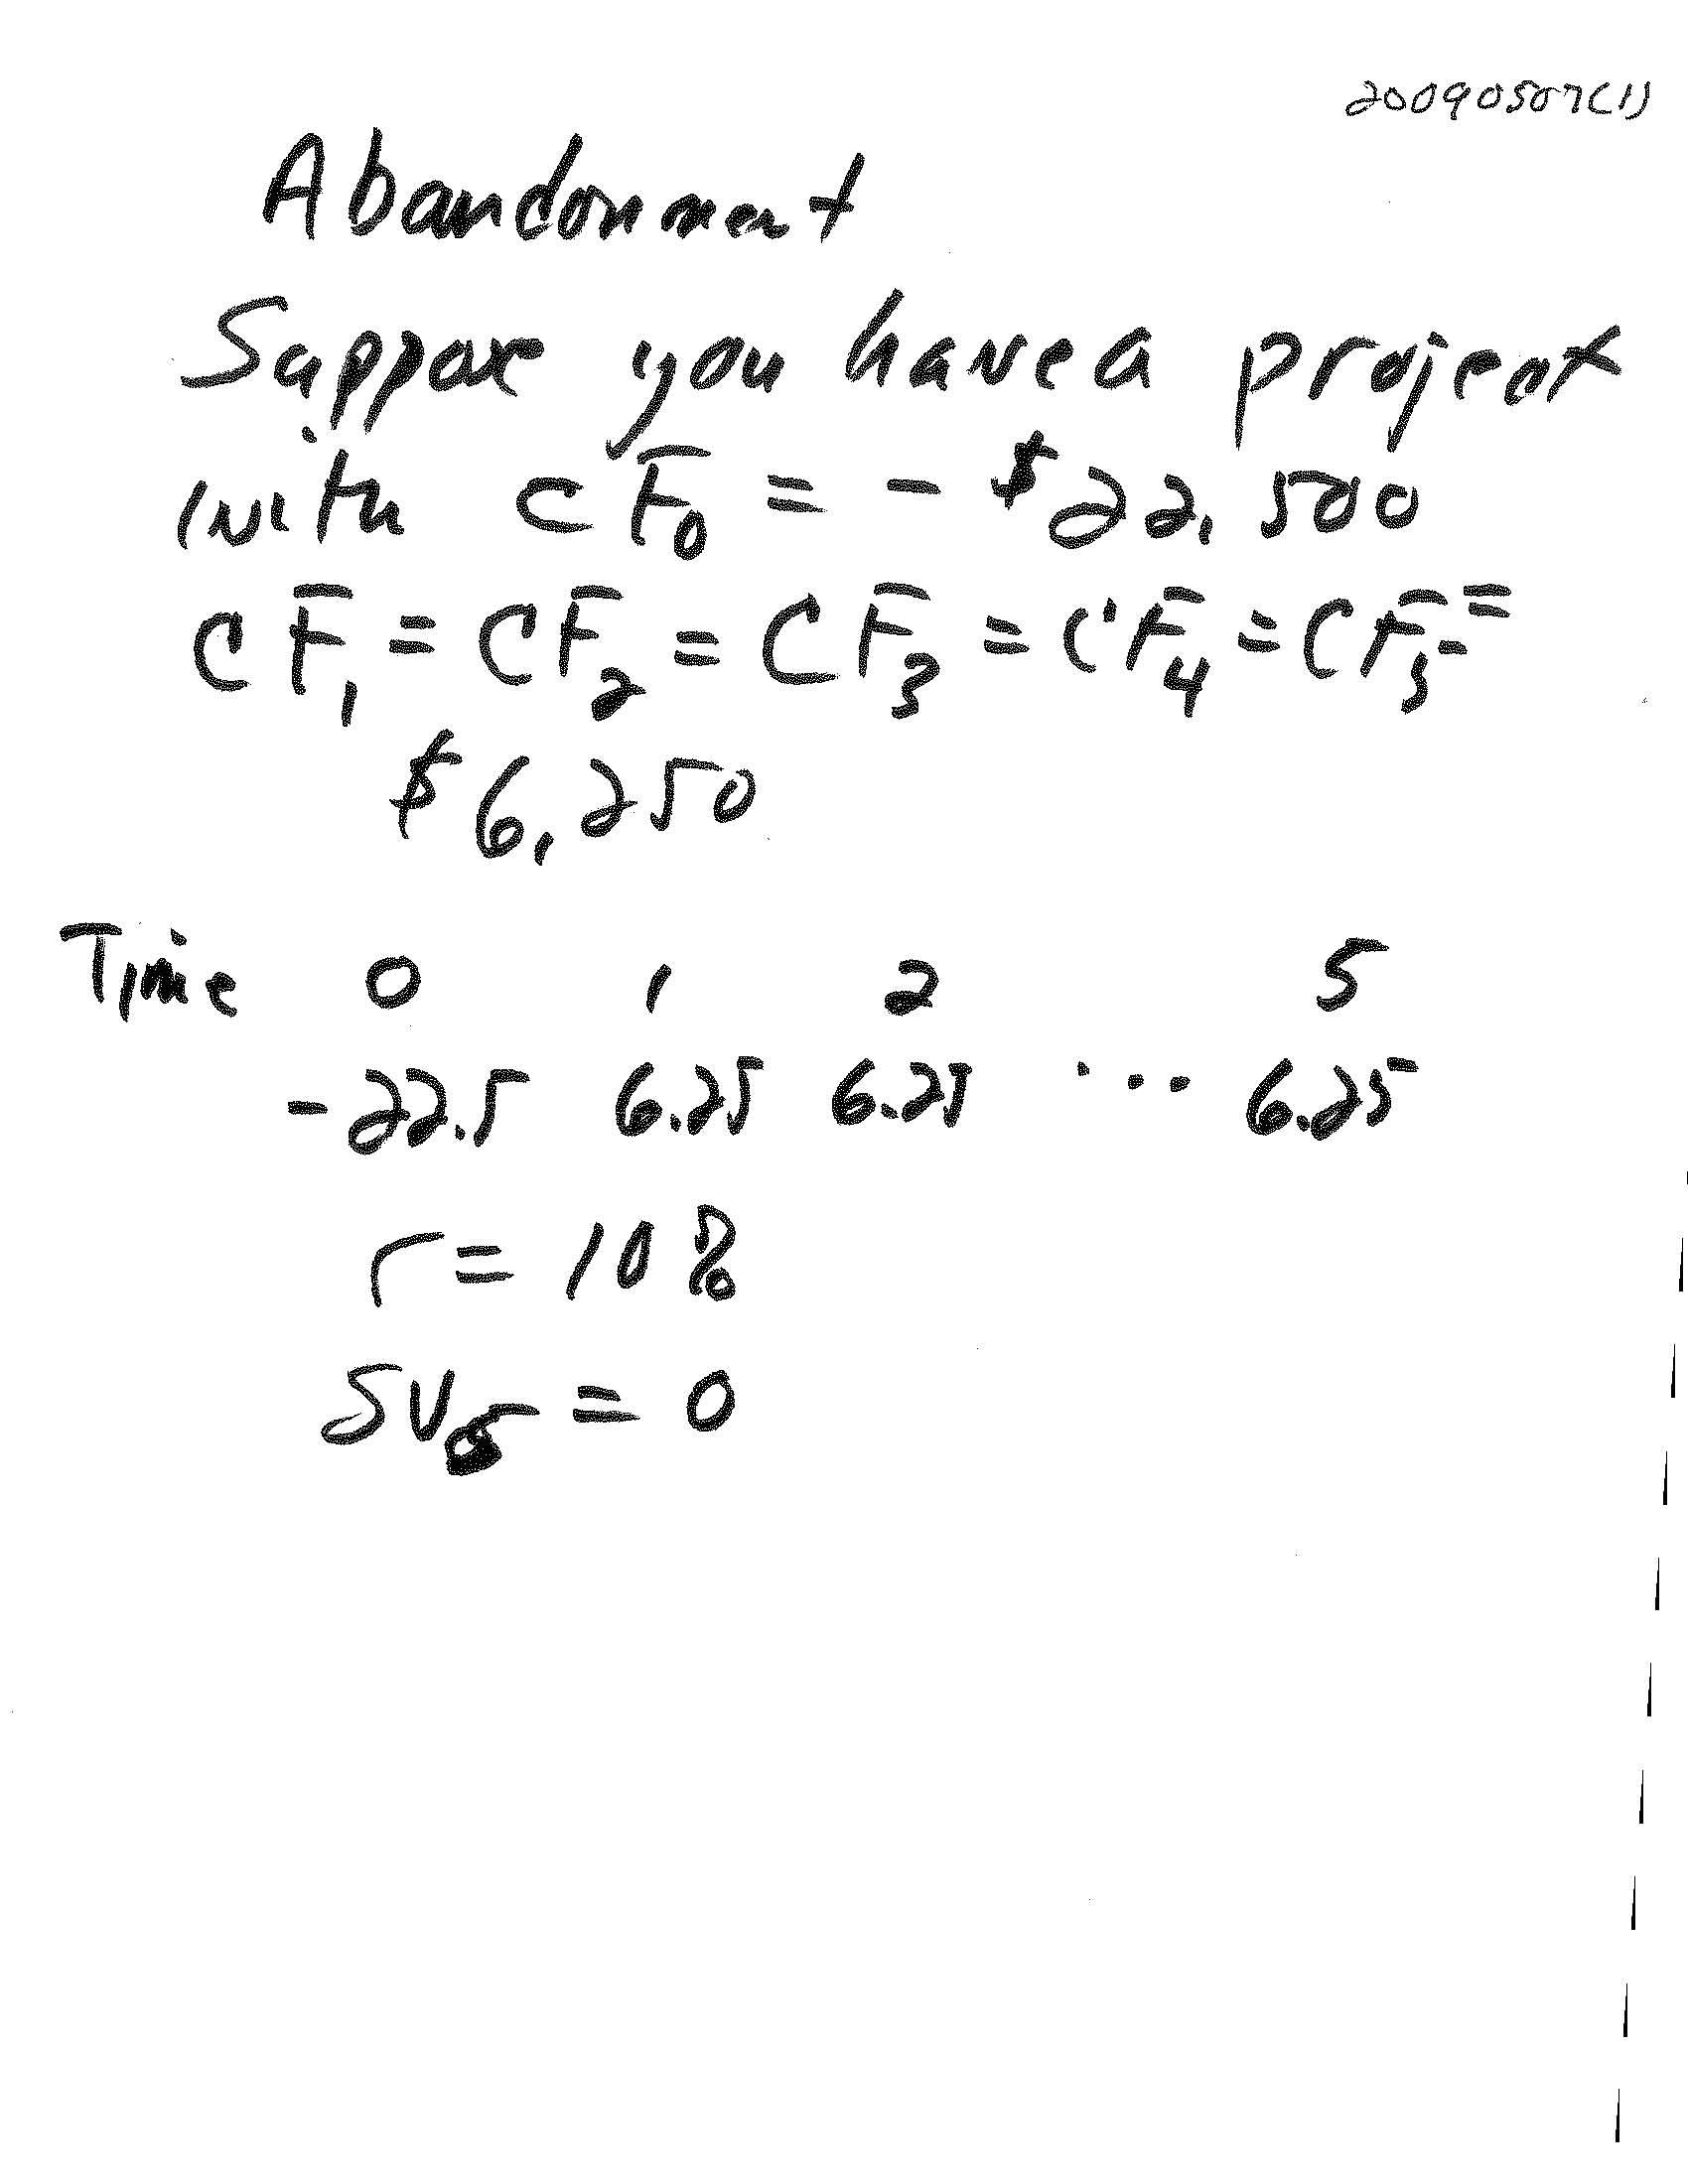 20090507(1)
Abandonment
Suppose you have a project
with CF0 = - $22,500
CF1 = CF2 = CF3 = CF4 = CF5 =
$6,250
Time 0 1 2 5
-22.5 6.25 6.25 ... 6.25
r = 10%
SV5 = 0